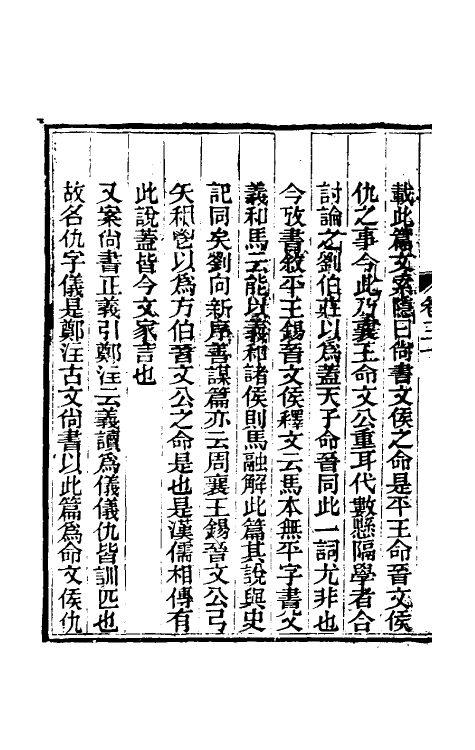 載此篇文索隱曰尚書文侯之命是平王命晉文侯
仇之事今此乃襄王命文公重耳代數懸隔學者合
討論之劉伯莊以爲蓋天子命晉同此一詞尤非也
今攷書敘平王錫晉文侯釋文云馬本無平字書父
義和馬云能以義和諸侯則馬融解此篇其說與史
記同矣劉向新序善謀篇亦云周襄王錫晉文公弓
矢秬鬯以爲方伯晉文公之命是也是漢儒相傳有
此說蓋皆今文家言也
又案尚書正義引鄭注云義讀爲儀儀仇皆訓匹也
故名仇字儀是鄭注古文尚書以此篇爲命文侯仇